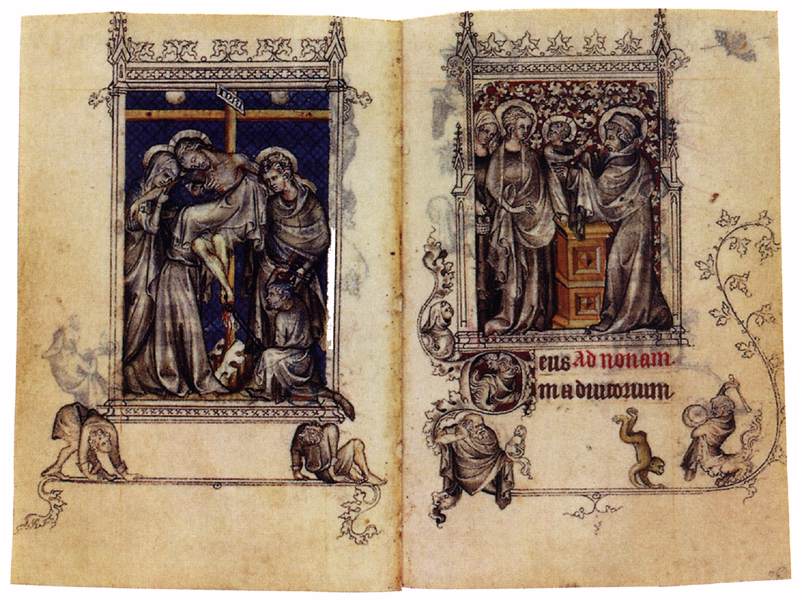 Deus Ad nonam
in adiutorium